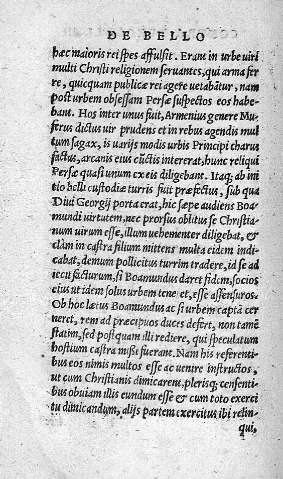 DE BELLO
hæc maioris rei spes affulsit. Erant in urbe uiri
multi Christi religionem seruantes, qui arma fer
re, quicquam publicæ rei agere uetabãtur, nam
post urbem obsessam Persæ suspectos eos habe
bant. Hos inter unus fuit, Armenius genere Mu
ferus dictus uir prudens et in rebus agendis mul
tum sagax, is uarijs modis urbis Principi charus
factus, arcanis eius cũctis intererat, hunc reliqui
Persæ quasi unum ex eis diligebant. Itaq; ab ini
tio belli custodiæ turris fuit præfectus, sub qua
Diui Georgij porta erat, hic sæpe audiens Boa
mundi uirtutem, nec prorsus oblitus se Christia
num uirum esse, illum uehementer diligebat, &
clàm in castra filium mittens multa eidem indi
cabat, demum pollicitus turrim tradere, id se ad
iecit facturum, si Boamundus daret fidem, socios
eius ut idem solus urbem teneret, esse assensuros.
Ob hoc lætus Boamundus ac si urbem captã cer
neret, rem ad præcipuos duces defert, non tamẽ
statim, sed postquam illi rediere, qui speculatum
hostium castra missi fuerant. Nam his referenti
bus eos nimis multos esse ac uenire instructos,
ut cum Christianis dimicarent, plerisq; censenti
bus obuiam illis eundum esse & cum toto exerci
tu dimicandum, alijs partem exercitus ibi relin-
qui,